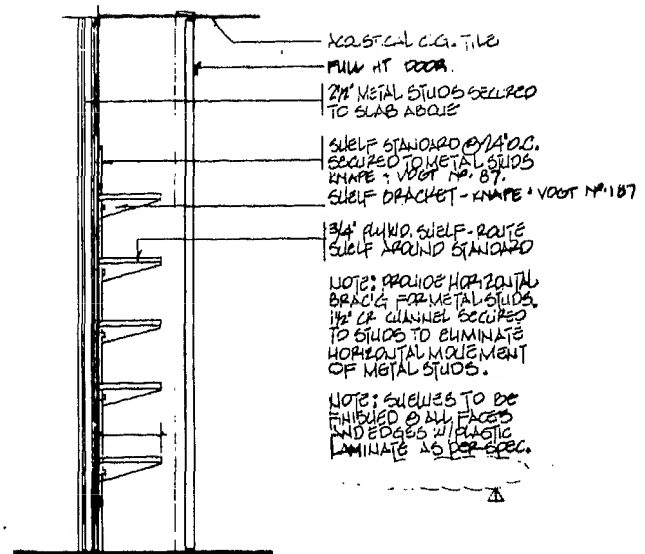 ACOUSTICAL C'L'G. TILE
FULL HT DOOR.
2½" METAL STUDS SECURED
TO SLAB ABOVE
SHELF STANDARD @ 24" O.C.
SECURED TO METAL STUDS
KNAPE & VOGT Nº. 87.
SHELF BRACKET - KNAPE & VOGT Nº. 187
3/4" PLYWD. SHELF - ROUTE
SHELF AROUND STANDARD
NOTE: PROVIDE HORIZONTAL
BRAC'G FOR METAL STUDS.
1½" CR CHANNEL SECURED
TO STUDS TO ELIMINATE
HORIZONTAL MOVEMENT
OF METAL STUDS.
NOTE: SHELVES TO BE
FINISHED @ ALL FACES
AND EDGES W/ PLASTIC
LAMINATE AS PER SPEC.